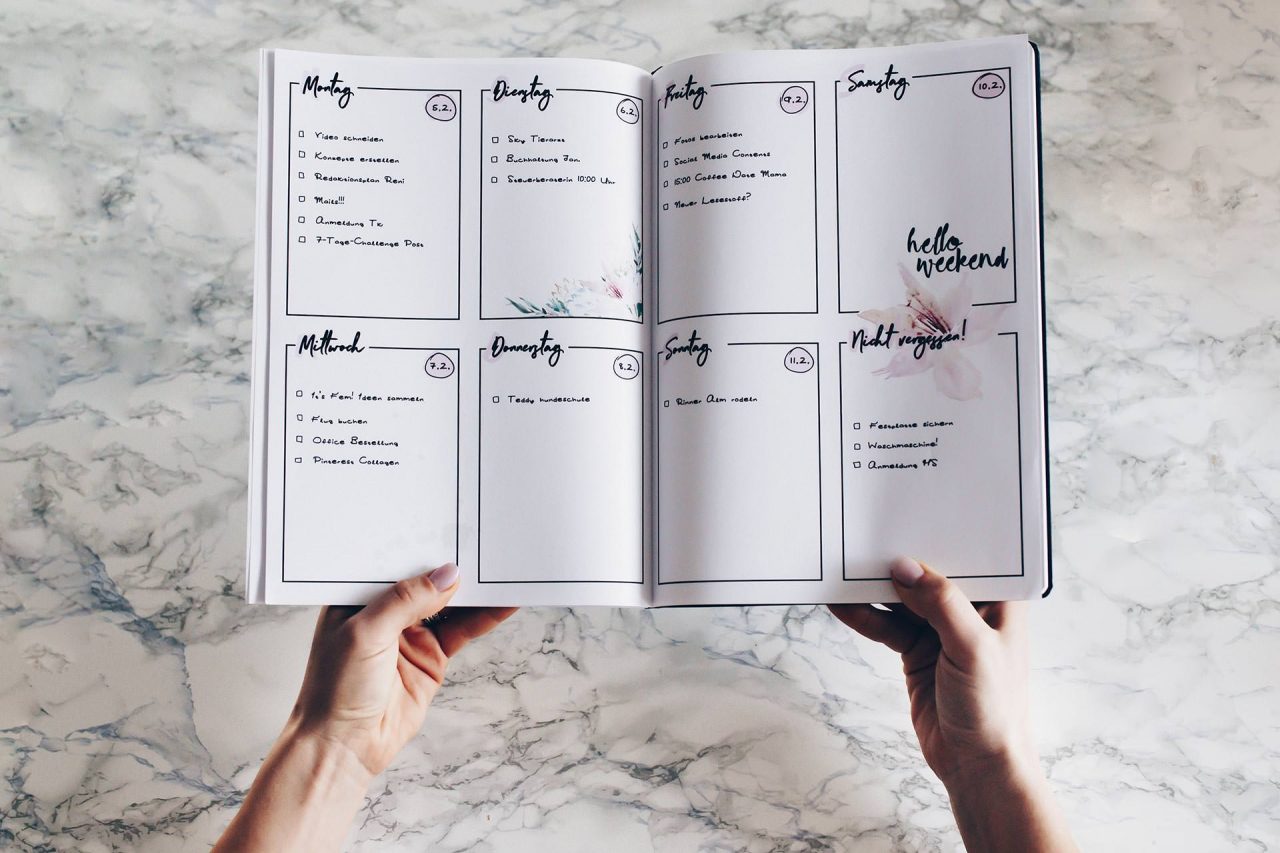 Montag
5.2.
Video schneiden
Konzepte erstellen
Redaktionsplan Reni
Mails!!!
Anmeldung Tk
7-Tage-Challenge Post
Dienstag
6.2.
Sky Tierarzt
Buchhaltung Jan.
Steuerberaterin 10:00 Uhr
Mittwoch
7.2.
It's Fem! Ideen sammeln
Flug buchen
Office Bestellung
Pinterest Collagen
Donnerstag
8.2.
Teddy Hundeschule
Freitag
9.2.
Fotos bearbeiten
Social Media Contents
15:00 Coffee Date Mama
Neuer Lesestoff?
Samstag
10.2.
hello
weekend
Sonntag
11.2.
Rinner Alm rodeln
Nicht vergessen!
Festplatte sichern
Waschmaschine!
Anmeldung HS